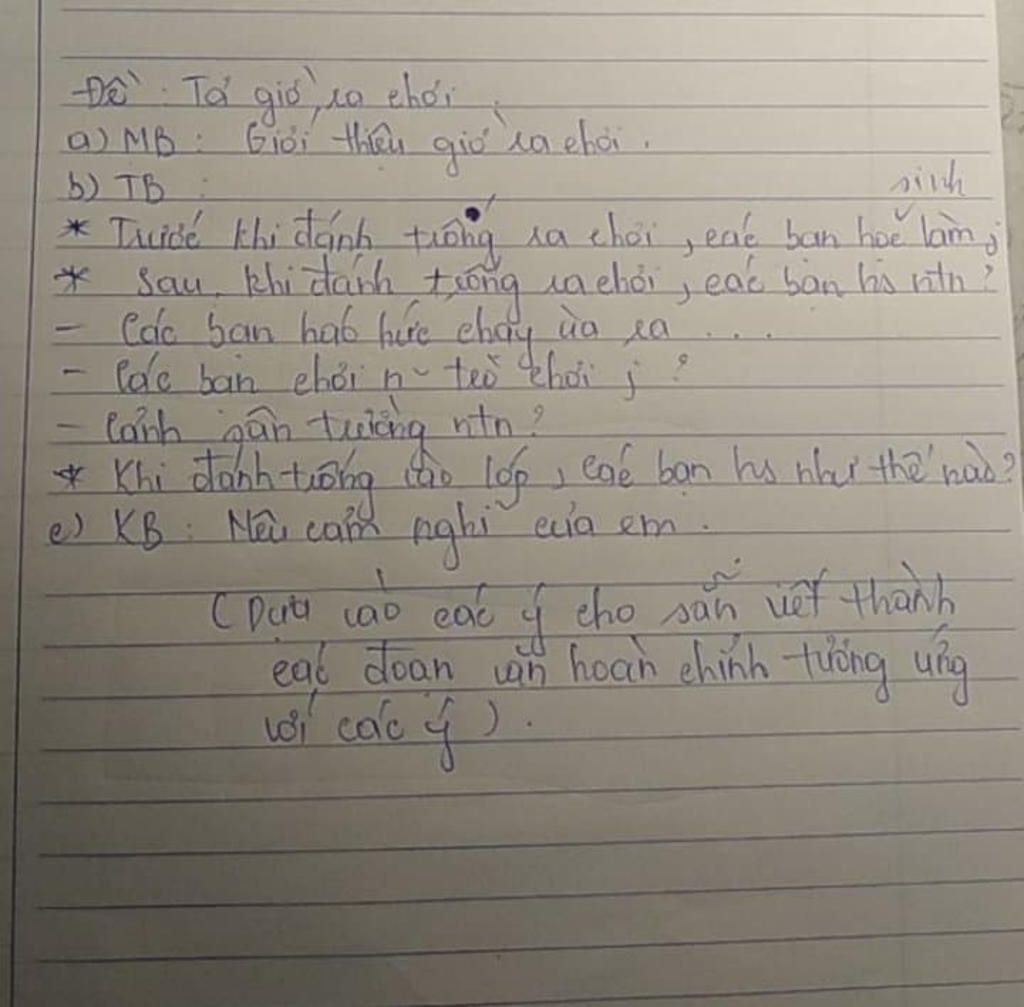 Đề : Tả giờ ra chơi.
a) MB : Giới thiệu giờ ra chơi.
b) TB :
* Trước khi đánh trống ra chơi, các bạn học sinh làm j
* Sau khi đánh trống ra chơi, các bạn hs ntn?
- Các bạn háo hức chạy ùa ra ...
- Các bạn chơi n~ trò chơi j ?
- Cảnh sân trường ntn?
* Khi đánh trống vào lớp, các bạn hs như thế nào?
c) KB : Nêu cảm nghĩ của em.
(Dựa vào các ý cho sẵn viết thành
các đoạn văn hoàn chỉnh tương ứng
với các ý).